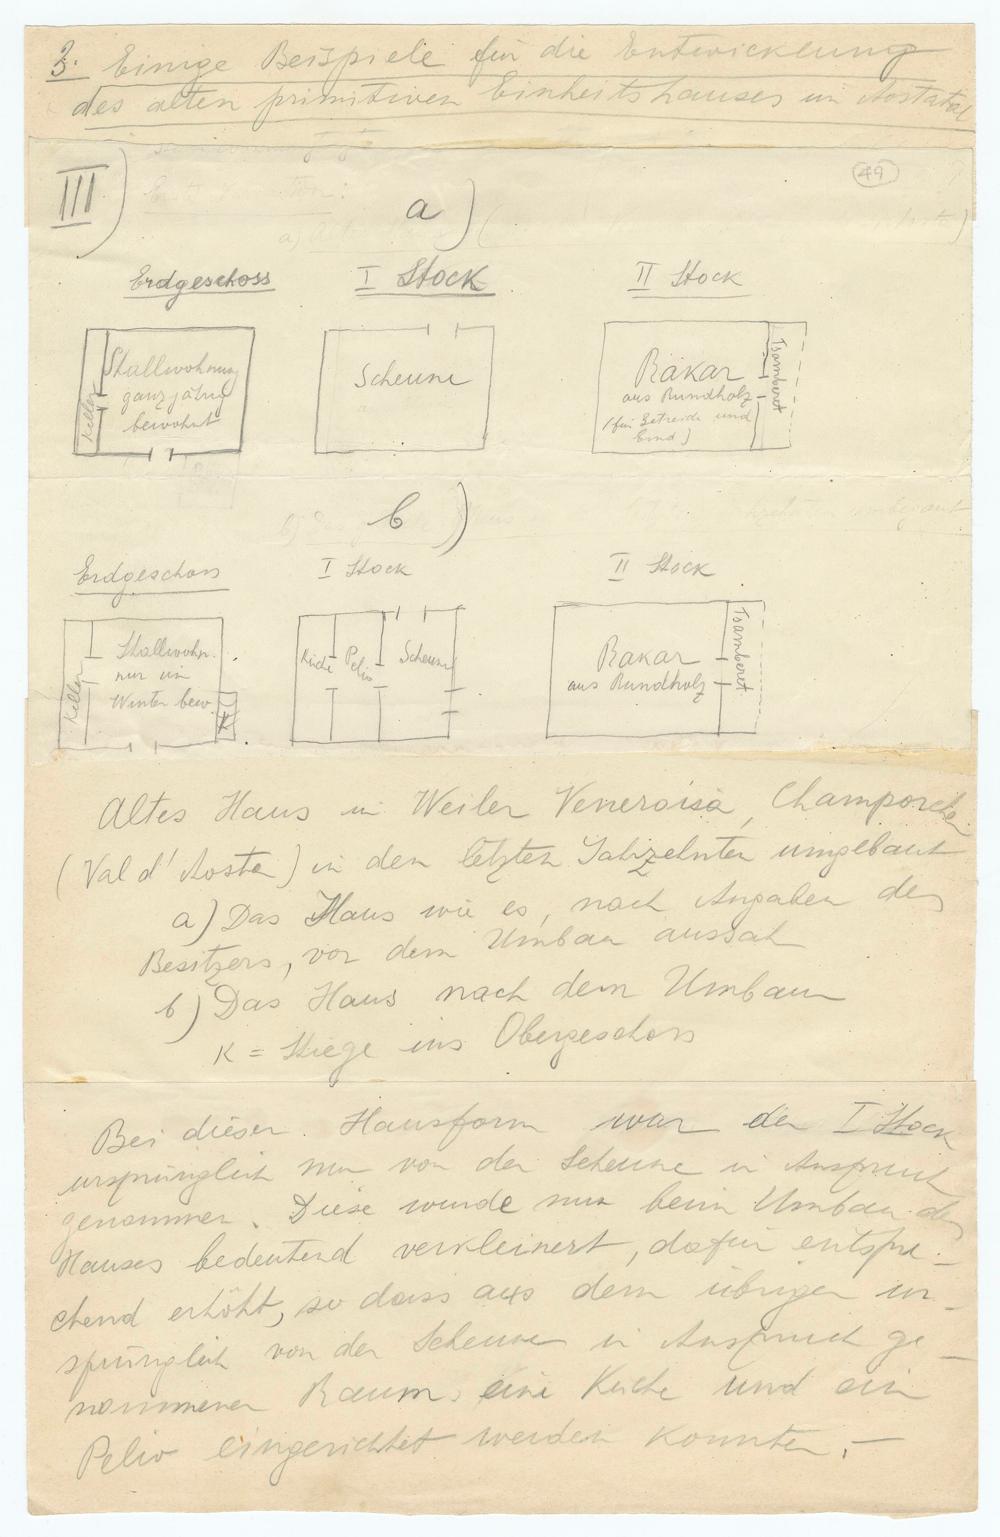 3. Einige Beispiele für die Entwicklung
des alten primitiven Einheitshauses im Aostatal
III)
49
a)
Erdgeschoss
I Stock
II Stock
Keller
Stallwohnung
ganzjährig
bewohnt
Scheune
Rakar
aus Rundholz
(für Getreide und
Tsamberet
b)
Erdgeschoss
I Stock
II Stock
Keller
Stallwohn.
nur im
Winter bew.
K
Küche
Pelio
Scheune
Rakar
aus Rundholz
Tsamberet
Altes Haus in Weiler Veneroisa, Champorcher
(Val d'Aosta) in den letzten Jahrzehnten umgebaut
a) Das Haus wie es, nach Angaben des
Besitzers, vor dem Umbau aussah
b) Das Haus nach dem Umbau
K = Stiege ins Obergeschoss
Bei dieser Hausform war der I Stock
ursprünglich nur von der Scheune in Anspruch
genommen. Diese wurde nun beim Umbau des
Hauses bedeutend verkleinert, dafür entspre-
chend erhöht, so dass aus dem übrigen ur-
sprünglich von der Scheune in Anspruch ge-
nommenen Raum eine Küche und ein
Pelio eingerichtet werden konnten.-